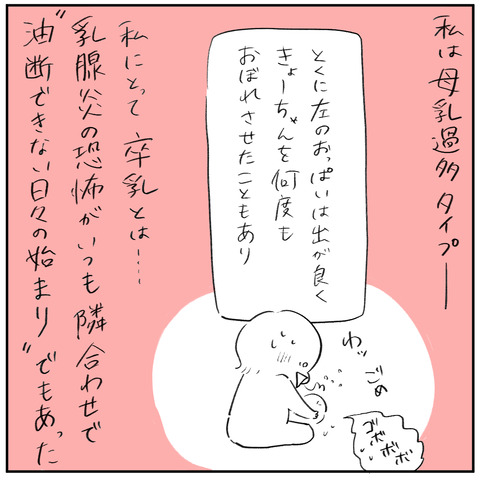 私は母乳過多タイプー
とくに左のおっぱいは出が良く
きょーちゃんを何度も
おぼれさせたこともあり
わッ
ごめ
ゴボボボ
私にとって卒乳とは……
乳腺炎の恐怖がいつも隣合わせで
“油断できない日々の始まり”でもあった